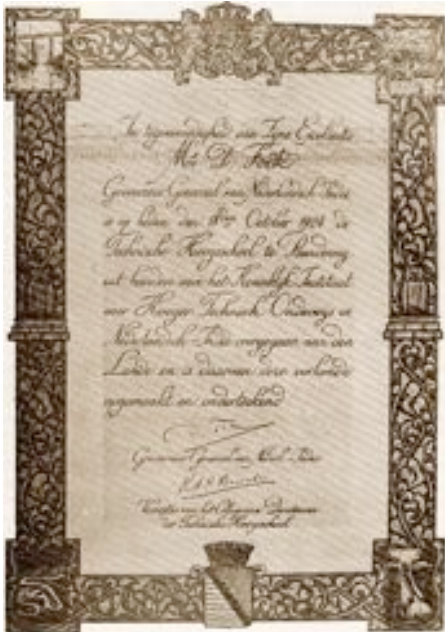 In tegenwoordigheid van Zijne Excellentie
Mr. D. Fock
Gouverneur Generaal van Nederlandsch-Indië
is op heden den 18den October 1924 de
Technische Hoogeschool te Bandoeng
uit handen van het Koninklijk Instituut
voor Hooger Technisch Onderwijs in
Nederlandsch-Indië overgegaan aan den
Lande en is daarvan deze oorkonde
opgemaakt en onderteekend
Gouverneur Generaal van Nederl.-Indië
Voorzitter van het College van Directeuren
der Technische Hoogeschool